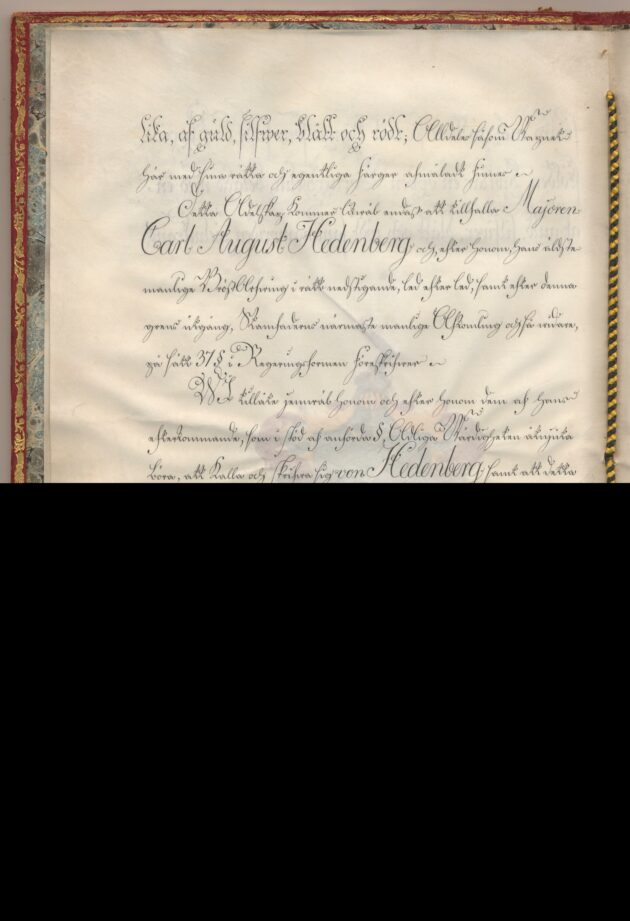 lika, af guld, silfwer, blått och rödt; Alldeles såsom Wapnet
här med sina rätta och egentliga färger afmåladt finnes
Detta Adelskap kommer likwäl endast att tillfalla Majoren
Carl August Hedenberg och, efter honom, hans äldste
manlige Bröstarfwinge i rätt nedstigande, led efter led, samt efter denna
grens utgång, Stamfaderns närmaste manlige Afkomling och så widare,
på sätt 37 § i Regeringsformen föreskrifwer
Wi tillåte jemwäl honom och efter honom dem af hans
efterkommande, som i stöd af anförda §, Adeliga Wärdigheten åtnjuta
böra, att kalla och skrifwa sig von Hedenberg, samt att detta